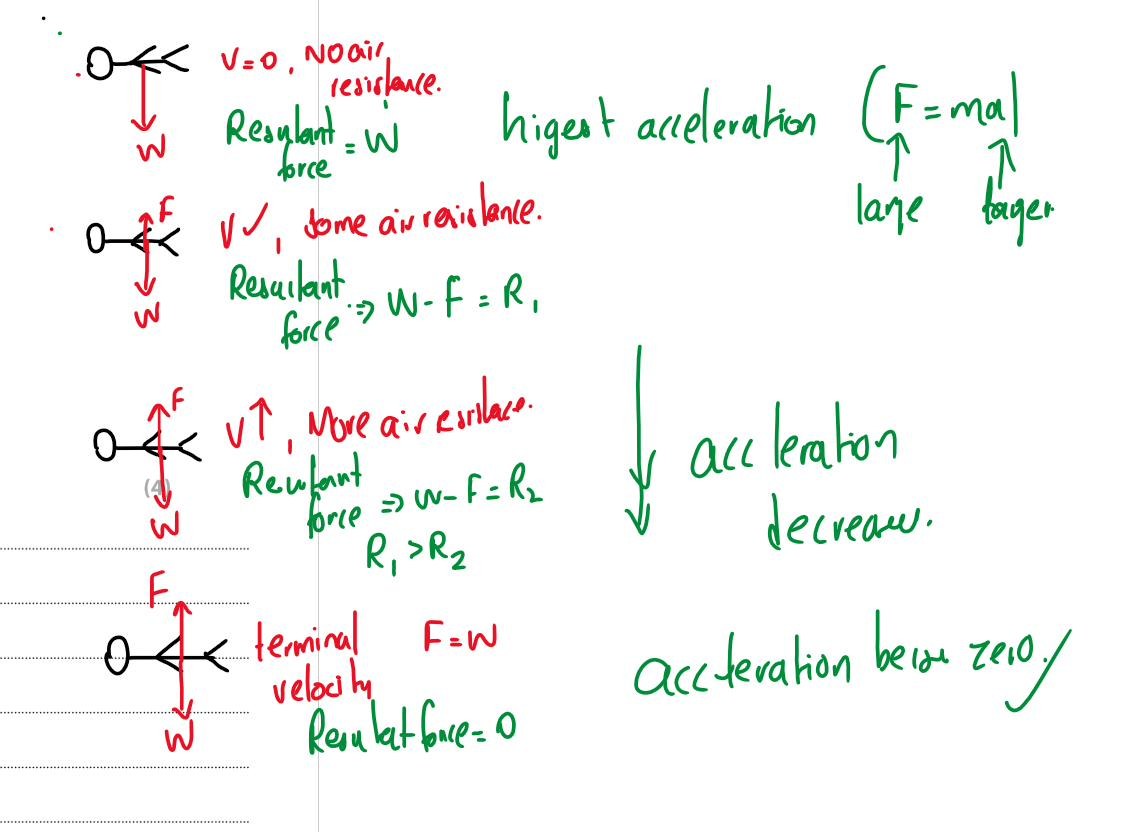 V=0, NO air
resistance.
W
Resultant
force = W
higest acceleration (F = ma)
large larger
F
V✓, some air resistance.
W
Resultant
force ⇒ W - F = R₁
F
V↑, More air
(4)
W
Resultant
force ⇒ W - F = R₂
R₁ > R₂
accleration
decrease.
F
terminal F = W
velocity
W
Resultant force = 0
accleration zero.